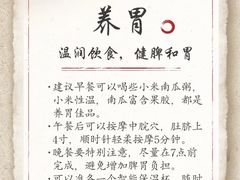 养胃
温润饮食，健脾和胃
·建议早餐可以喝些小米南瓜粥，
小米性温，南瓜富含果胶，都是
养胃佳品。
·午餐后可以按摩中脘穴，脐上
4寸，顺时针轻柔按摩5分钟。
·晚餐要特别注意，尽量在7点前
完成，避免增加脾胃负担。
·可以准备一个智能保温杯，随时